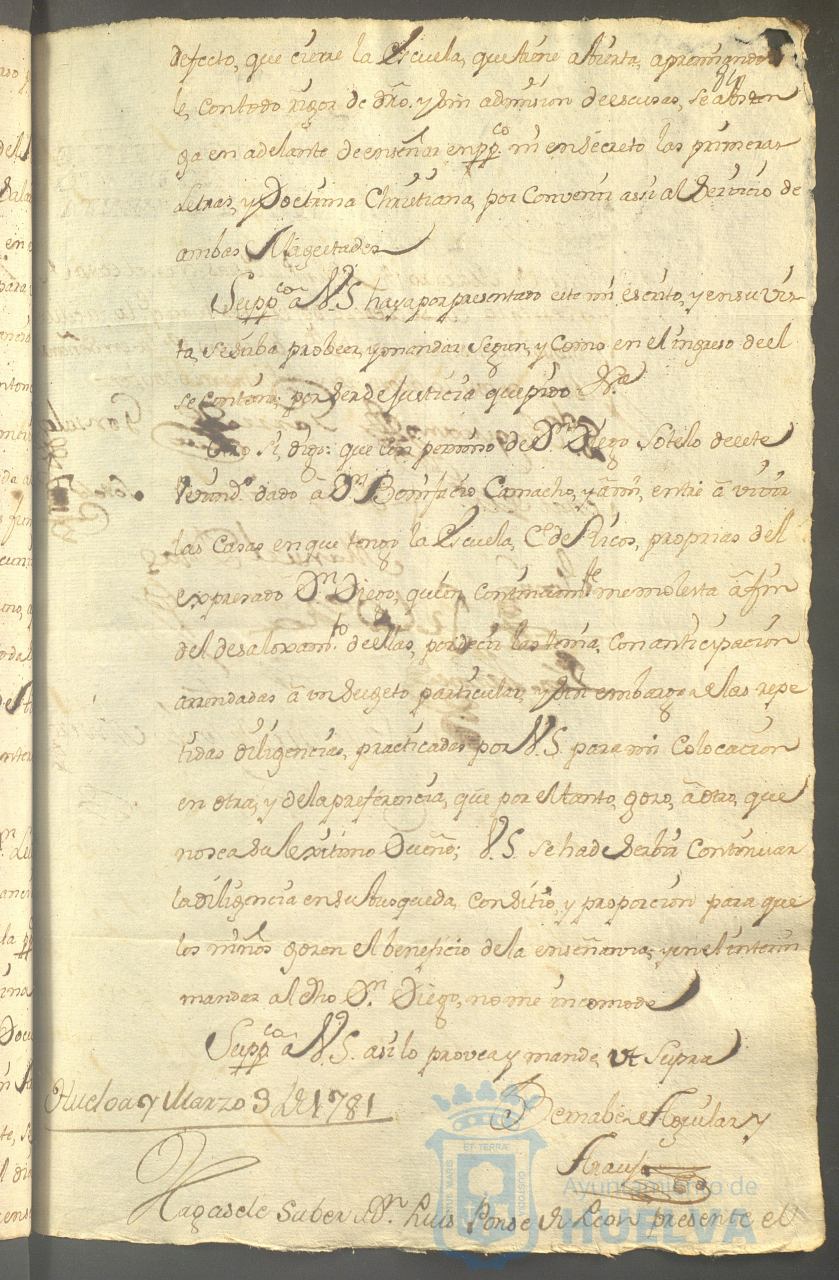 defecto, que cierre la Escuela, que tiene abierta, apremiando
le, con todo rigor de dro. y sin admision de escusas, se absten
ga en adelante de enseñar en pp.co ni en secreto las primeras
Letras, y Doctrina Christiana, por convenir assi al Servicio de
ambas Magestades
Supp.co a V.S. haya por presentado este mi escrito, y en su vis
ta, se sirba probeer, y mandar segun, y como en el ingreso de el
se contiene, por ser de Justicia que pido &.a
Otro si, digo: que con permiso de D.n Diego Sotelo de este
Vecind.o dado â D.n Bonifacio Camacho, y â mi, entré â vivir
las Casas en que tengo la Escuela, C. de Ricos, proprias del
expresado D.n Diego, quien continuam.te me molesta â fin
del desaloxam.to de ellas, por decir las tenia, con anticipacion
arrendadas â un Sugeto particular, y sin embargo de las repe
tidas diligencias, practicadas por V.S. para mi Colocacion
en otra, y de la preferencia, que por el tanto, gozo, â otro, que
no sea su lexitimo Dueño; V.S. se ha de serbir continuar
la diligencia en su busqueda, con sitio, y proporcion para que
los niños gozen el beneficio de la enseñanza; y en el interin
mandar al dho D.n Diego, no me incomode
Supp.co a V.S. asi lo provea y mande, ut Supra
Bernabe Aguilar y
Araujo
Huelva y Marzo 3 de 1781
Hagasele Saber a D.n Luis Ponse de Leon presente el
Ayuntamiento de
HUELVA